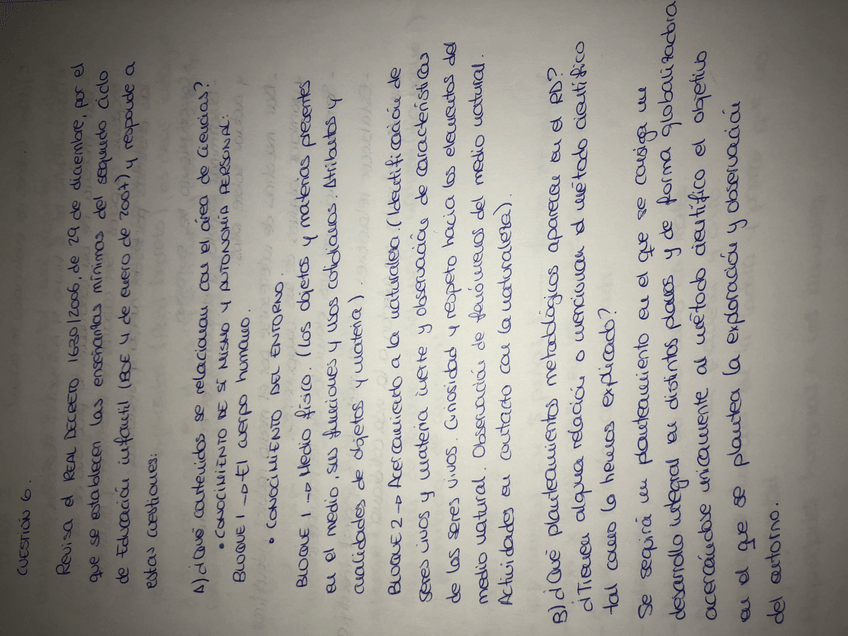 CUESTIÓN 6.
Revisa el REAL DECRETO 1630/2006, de 29 de diciembre, por el
que se establecen las enseñanzas mínimas del segundo ciclo
de Educación infantil (BOE 4 de enero de 2007), y responde a
estas cuestiones:
A) ¿Qué contenidos se relacionan con el área de Ciencias?
• CONOCIMIENTO DE SÍ MISMO Y AUTONOMÍA PERSONAL:
BLOQUE 1 → El cuerpo humano.
• CONOCIMIENTO DEL ENTORNO.
BLOQUE 1 → Medio físico. (Los objetos y materias presentes
en el medio, sus funciones y usos cotidianos. Atributos y
cualidades de objetos y materia).
BLOQUE 2 → Acercamiento a la naturaleza. (Identificación de
seres vivos y materia inerte y observación de características
de los seres vivos. Curiosidad y respeto hacia los elementos del
medio natural. Observación de fenómenos del medio natural.
Actividades en contacto con la naturaleza).
B) ¿Qué planteamientos metodológicos aparecen en el RD?
¿Tienen alguna relación o mencionan el método científico
tal como lo hemos explicado?
Se seguirá un planteamiento en el que se consiga un
desarrollo integral en distintos planos y de forma globalizadora
acercándose unicamente al método científico el objetivo
en el que se plantea la exploración y observación
del entorno.